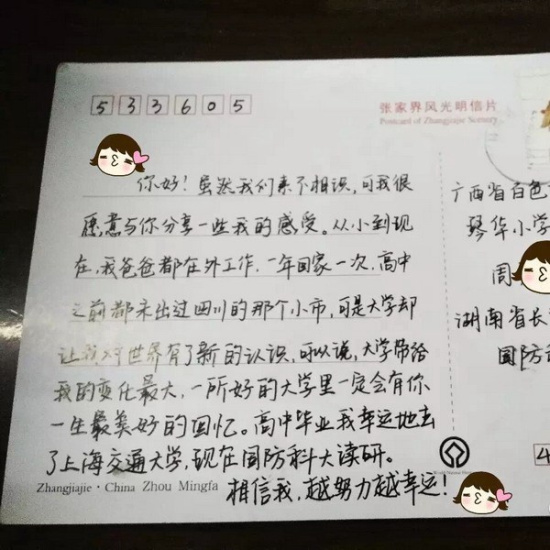 533605
张家界风光明信片
Postcard of Zhangjiajie Scenery
你好！虽然我们素不相识，可我很
愿意与你分享一些我的感受。从小到现
在，我爸爸都在外工作，一年回家一次，高中
之前都未出过四川的那个小市，可是大学却
让我对世界有了新的认识，可以说，大学带给
我的变化最大，一所好的大学里一定会有你
一生最美好的回忆。高中毕业我幸运地去
了上海交通大学，现在国防科大读研。
相信我，越努力越幸运！
广西省百色
琴华小学
周
湖南省长
国防
4
Zhangjiajie·China Zhou Mingfa